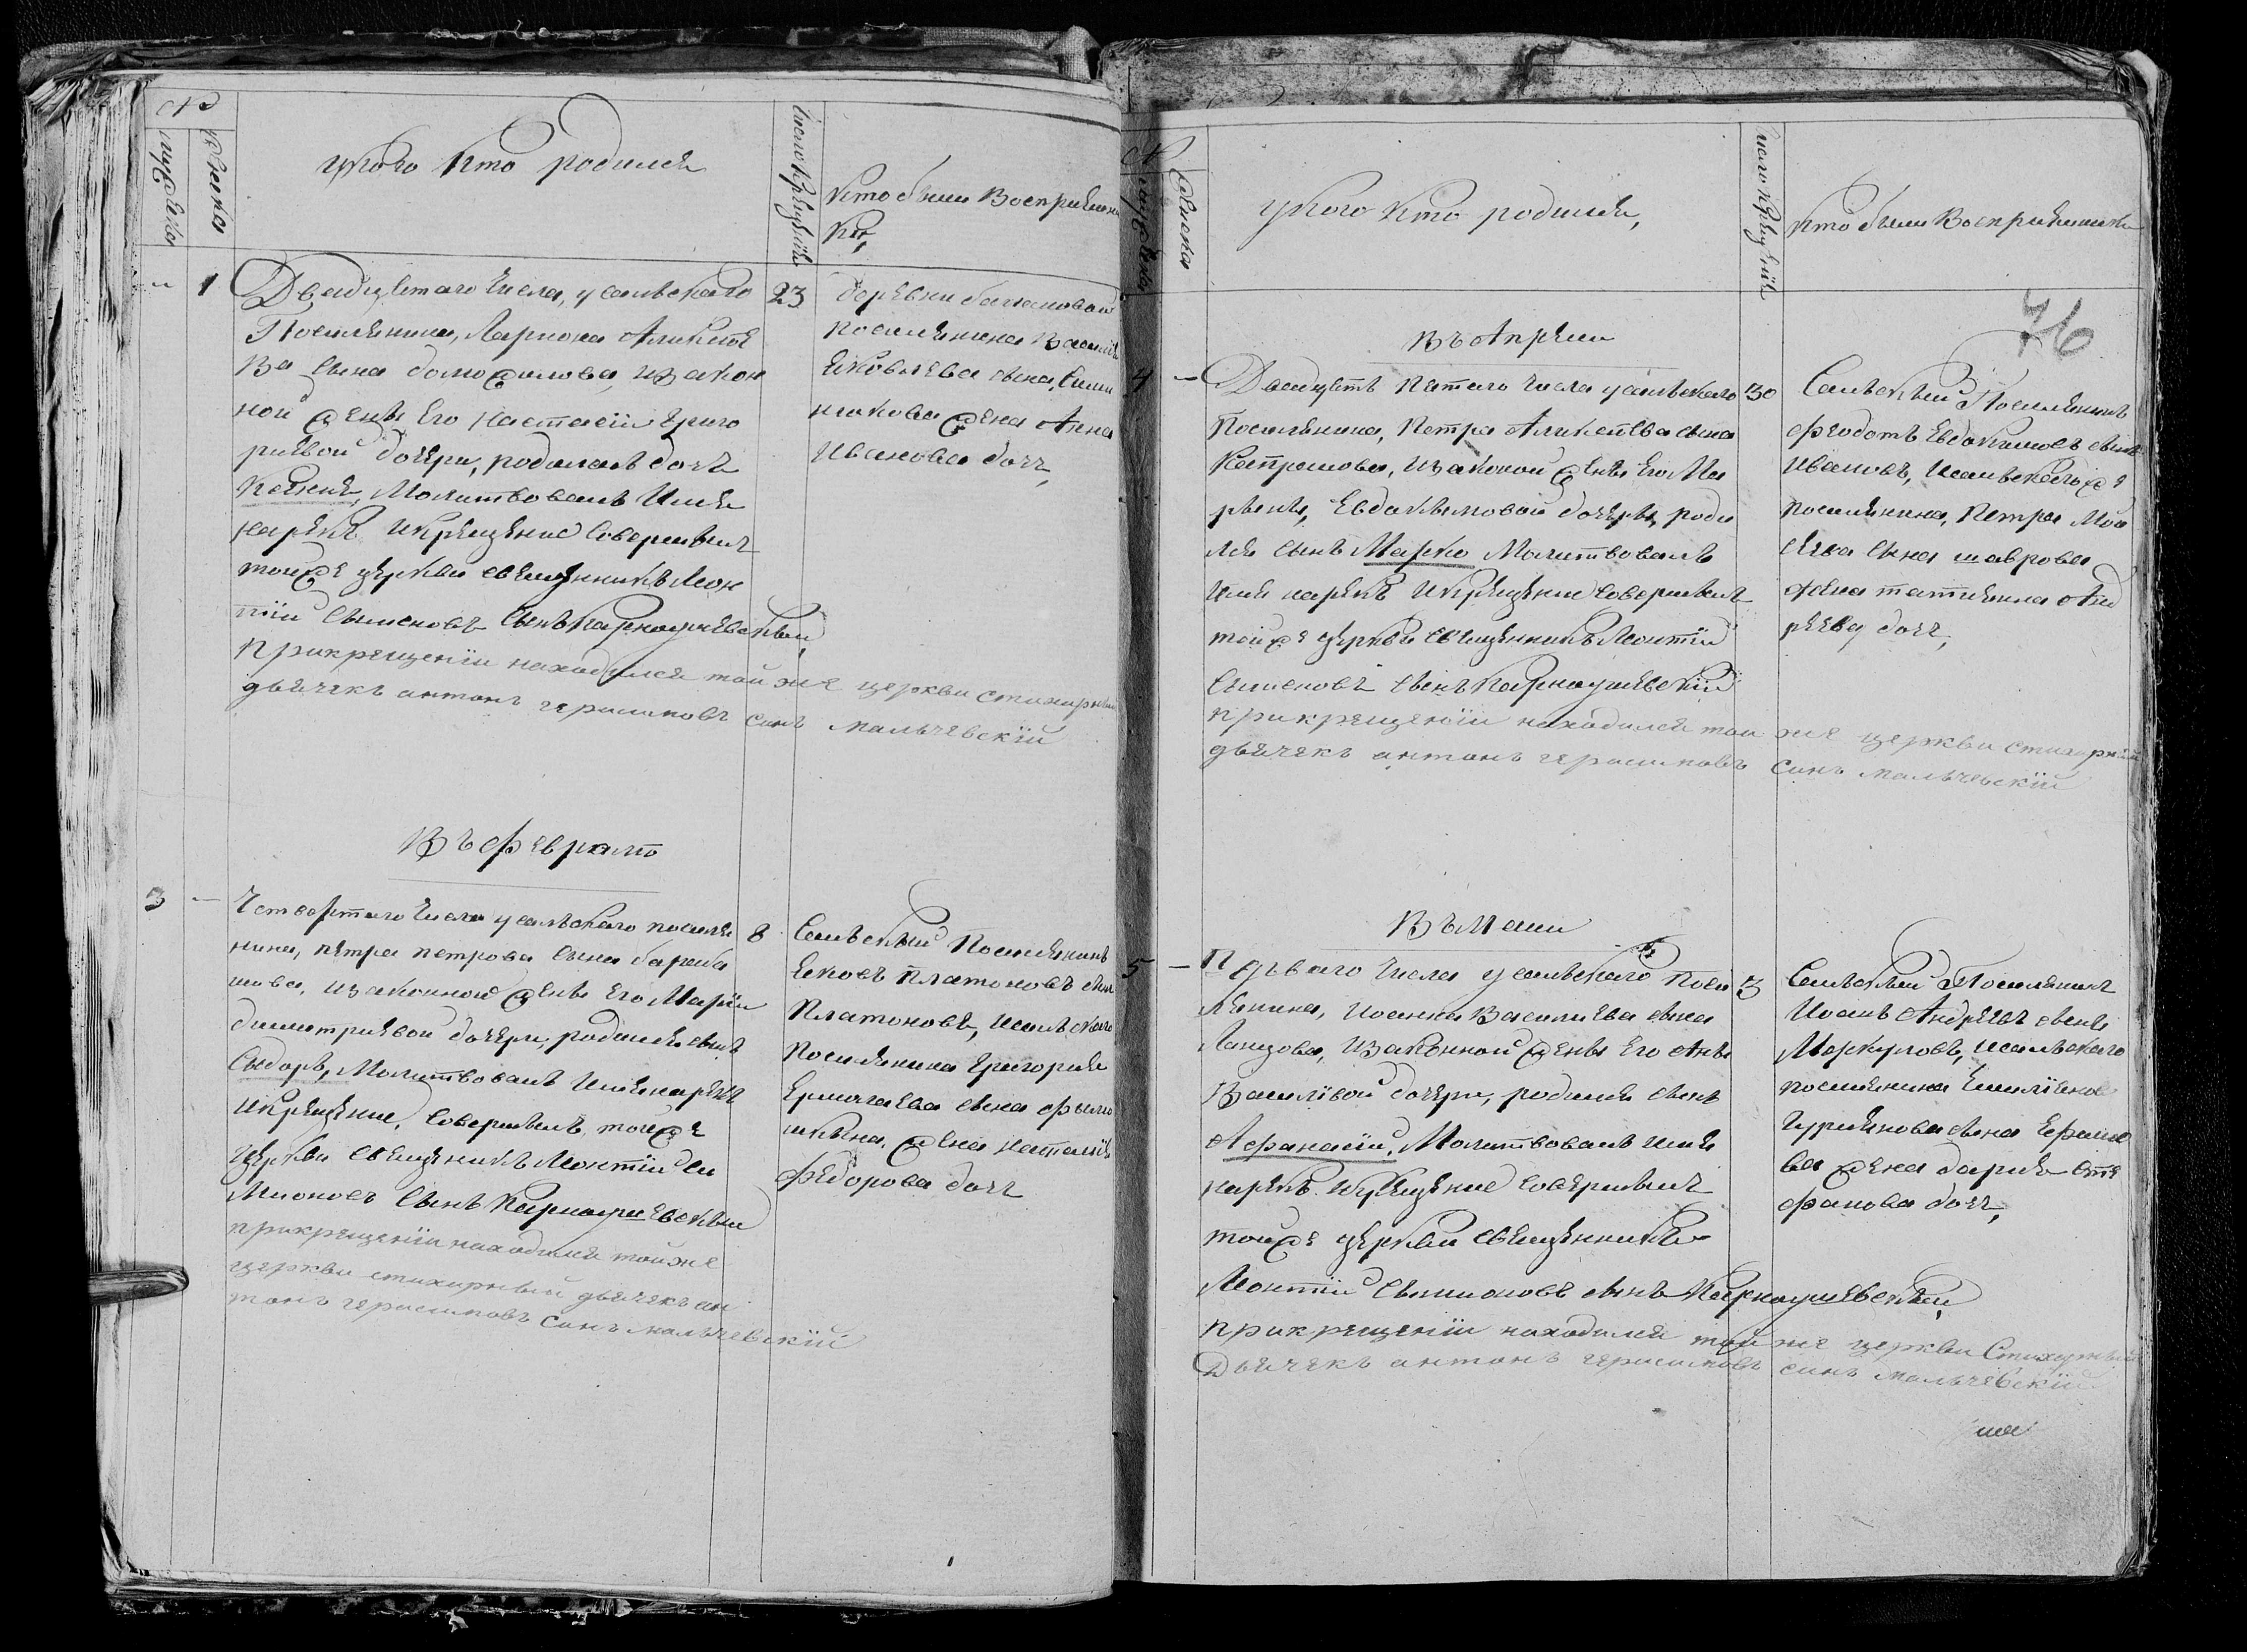 №
мужеска
женска
укого кто родился
число крещенія
кто были восприемни
ки,
1
Двадцетаго числа, усельскаго
Поселянина, Лариона Аликсѣе
ва сына доможилова, иззакон
ной жены его Настасіи григо
риевой дочери, родилась дочь
молитвовалъ имя
нарекъ икрещение совершилъ
тойже церкви священникъ Леон
тій Симеоновъ сынъ Карнаушевскій,
прикрещеніи находился той же церкви стихарный
дьячекъ антонъ герасимовъ синъ мальчевскій
23
деревни
поселянина Васил
яковлева сына,
жена Анна
Иванова дочь,
Въ февралѣ
3
Четвертаго числа усельскаго поселя
нина, петра петрова сына бараба
шова, иззаконной жены его Маріи
димитриевой дочери, родился сынъ
Сидоръ, молитвовалъ имя нарекъ
икрещение, совершилъ тойже
церкви священикъ Леонтій Си
мионовъ сынъ Карнаушевскій
прикрещеніи находился тойже
церкви стихирный дьячекъ ан
тонъ герасимовъ синъ мальчевскій
8
Сельскій поселянинъ
Яковъ Платоновъ сынъ
Платоновъ, исельскаго
поселянина григория
Ермолаева сына фили
жена наталія
Федорова дочь
№
мужеска
женска
укого кто родился,
число крещенія
кто были восприемники
76
Въ Апрели
4
Двадцеть пятаго числа усельскаго
поселянина, Петра Аликсѣева сына
иззаконой жены его Ма
рьи, Евдокимовой дочеры, роди
лся сынъ Марко молитвовалъ
имя нарекъ икрещение совершилъ
тойже церкви священникъ Леонтій
Симеоновъ сынъ Карнаушевскій
прикрещеніи находился той же церкви стихирный
дьячекъ антонъ герасимовъ синъ мальчевскій
30
Сельскый Поселянинъ
Федотъ Евдокимовъ сынъ
Ивановъ, исельскагоже
поселянина, Петра Мои
сеева сына шаврова
жена татиянна Анд
реева дочь,
Въ Маии
5
Перваго числа усельскаго посе
лянина, иоанна Василиева сына
иззаконной жены его Аны
Василивой дочери, родился сынъ
Афанасій, молитвовалъ имя
нарекъ икрещение совершилъ
тойже церкви священникъ
Леонтій Симионовъ сынъ Карнаушевскій,
прикрещеніи находился той же церкви Стихирный
Дьячекъ антонъ герасимовъ синъ мальчевскій
3
Сельскій Поселянинъ
Иоанъ Андреевъ сынъ
Меркуловъ, исельскаго
поселянина Емилияна
сына Ефимо
ва жена дария Сте
фанова дочь,